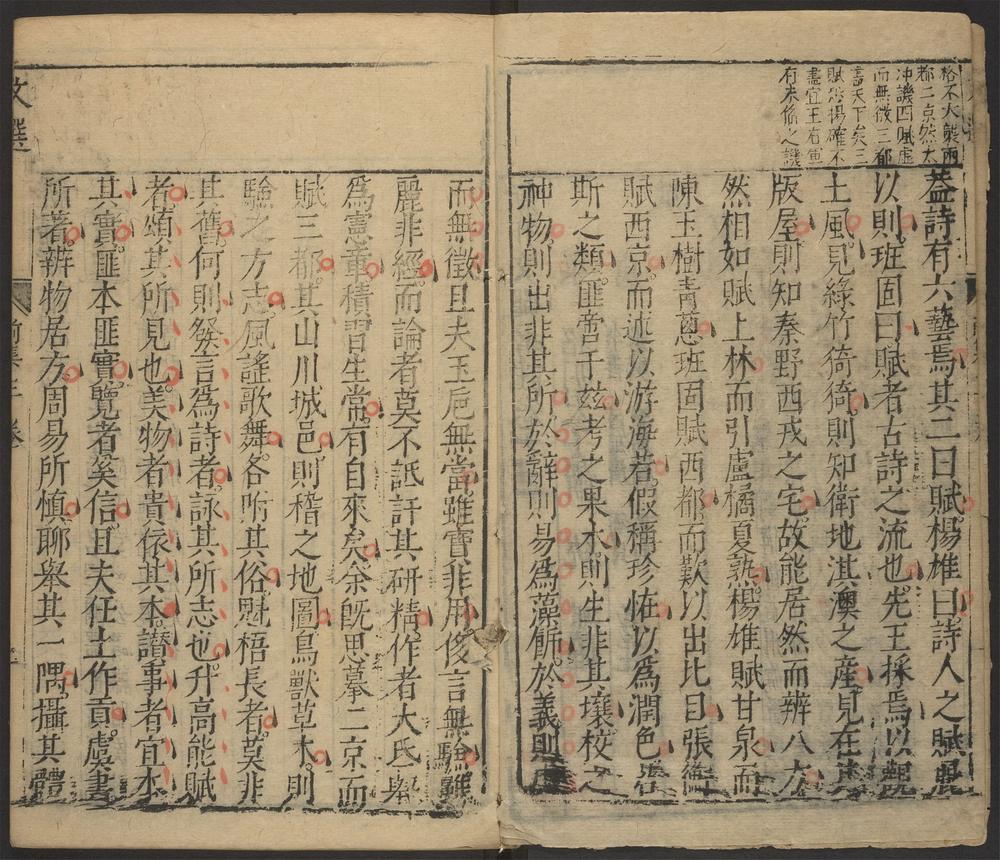 裕不大
都二京然太
冲譏四賦虛
而無徵三都
言天下矣三
賦
盡宜王右軍
有未
蓋詩有六藝焉其二曰賦楊雄曰詩人之賦麗
以則班固曰賦者古詩之流也先王採焉以觀
土風見綠竹猗猗則知衛地淇澳之産見在其
版屋則知秦野西戎之宅故能居然而辨八方
然相如賦上林而引盧橘夏熟楊雄賦甘泉而
陳玉樹青蔥班固賦西都而歎以出比目張衡
賦西京而述以游海若假稱珍恠以爲潤色若
斯之類匪啻于兹考之果木則生非其壤校之
神物則出非其所於辭則易爲藻飾於義則虛
而無徵且夫玉巵無當雖寶非用侈言無驗雖
麗非經而論者莫不詆訐其研精作者大氐舉
爲憲章積習生常有自來矣余旣思摹二京而
賦三都其山川城邑則稽之地圖鳥獸草木則
驗之方志風謠歌舞各附其俗魁梧長者莫非
其舊何則發言爲詩者詠其所志也升高能賦
者頌其所見也美物者貴依其本讚事者宜本
其實匪本匪實覽者奚信且夫任土作貢虞書
所著辨物居方周易所慎聊舉其一隅攝其體
文選
前集三卷